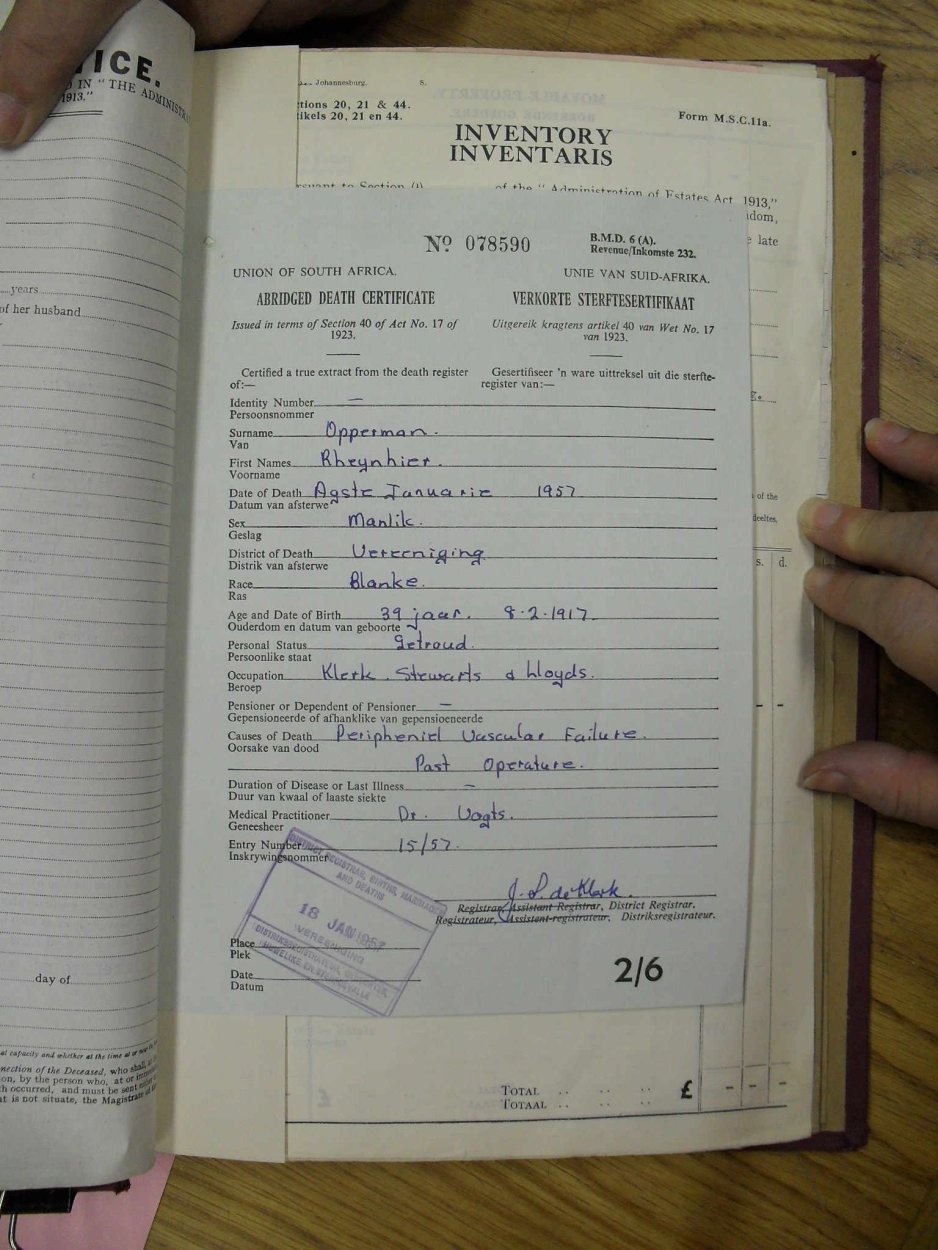 TICE.
D IN "THE ADMINISTR
1913."
years
of her husband
day of
al capacity and whether at the time at or
nection of the Deceased, who shall, at
on, by the person who, at or
h occurred, and must be sent
at is not situate, the Magistrate of the
Johannesburg. S.
tions 20, 21 & 44.
tikels 20, 21 en 44.
Form M.S.C.11a.
INVENTORY
INVENTARIS
rsuant to Section of the "Administration of Estates Act 1913,"
dom,
e late
Nº 078590
B.M.D. 6 (A).
Revenue/Inkomste 232.
UNION OF SOUTH AFRICA. UNIE VAN SUID-AFRIKA.
ABRIDGED DEATH CERTIFICATE VERKORTE STERFTESERTIFIKAAT
Issued in terms of Section 40 of Act No. 17 of Uitgereik kragtens artikel 40 van Wet No. 17
1923. van 1923.
Certified a true extract from the death register Gesertifiseer 'n ware uittreksel uit die sterfte-
of:— register van:—
Identity Number —
Persoonsnommer
Surname Opperman.
Van
First Names Rheynhier.
Voorname
Date of Death Agste Januarie 1957
Datum van afsterwe
Sex Manlik.
Geslag
District of Death Vereeniging
Distrik van afsterwe
Race Blanke.
Ras
Age and Date of Birth 39 jaar. 8-2-1917
Ouderdom en datum van geboorte
Personal Status Getroud.
Persoonlike staat
Occupation Klerk. Stewarts & Lloyds.
Beroep
Pensioner or Dependent of Pensioner —
Gepensioneerde of afhanklike van gepensioeneerde
Causes of Death Periphenid Vascular Failure.
Oorsake van dood
Past Operature.
Duration of Disease or Last Illness —
Duur van kwaal of laaste siekte
Medical Practitioner Dr. Vogts.
Geneesheer
Entry Number 15/57.
Inskrywingsnommer
DISTRICT REGISTRAR, BIRTHS, MARRIAGES
AND DEATHS
18 JAN 1957
VEREENIGING
J. S. de Klerk
Registrar, Assistant Registrar, District Registrar.
Registrateur, Assistant-registrateur, Distriksregistrateur.
Place
Plek
Date
Datum
2/6
of the
deeltes,
s. d.
TOTAL £ - - -
TOTAAL